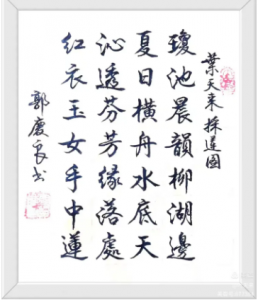 葉天來採蓮圖
瓊池晨韻柳湖邊
夏日橫舟水底天
沁透芬芳緣落處
紅衣玉女手中蓮
郭慶良书